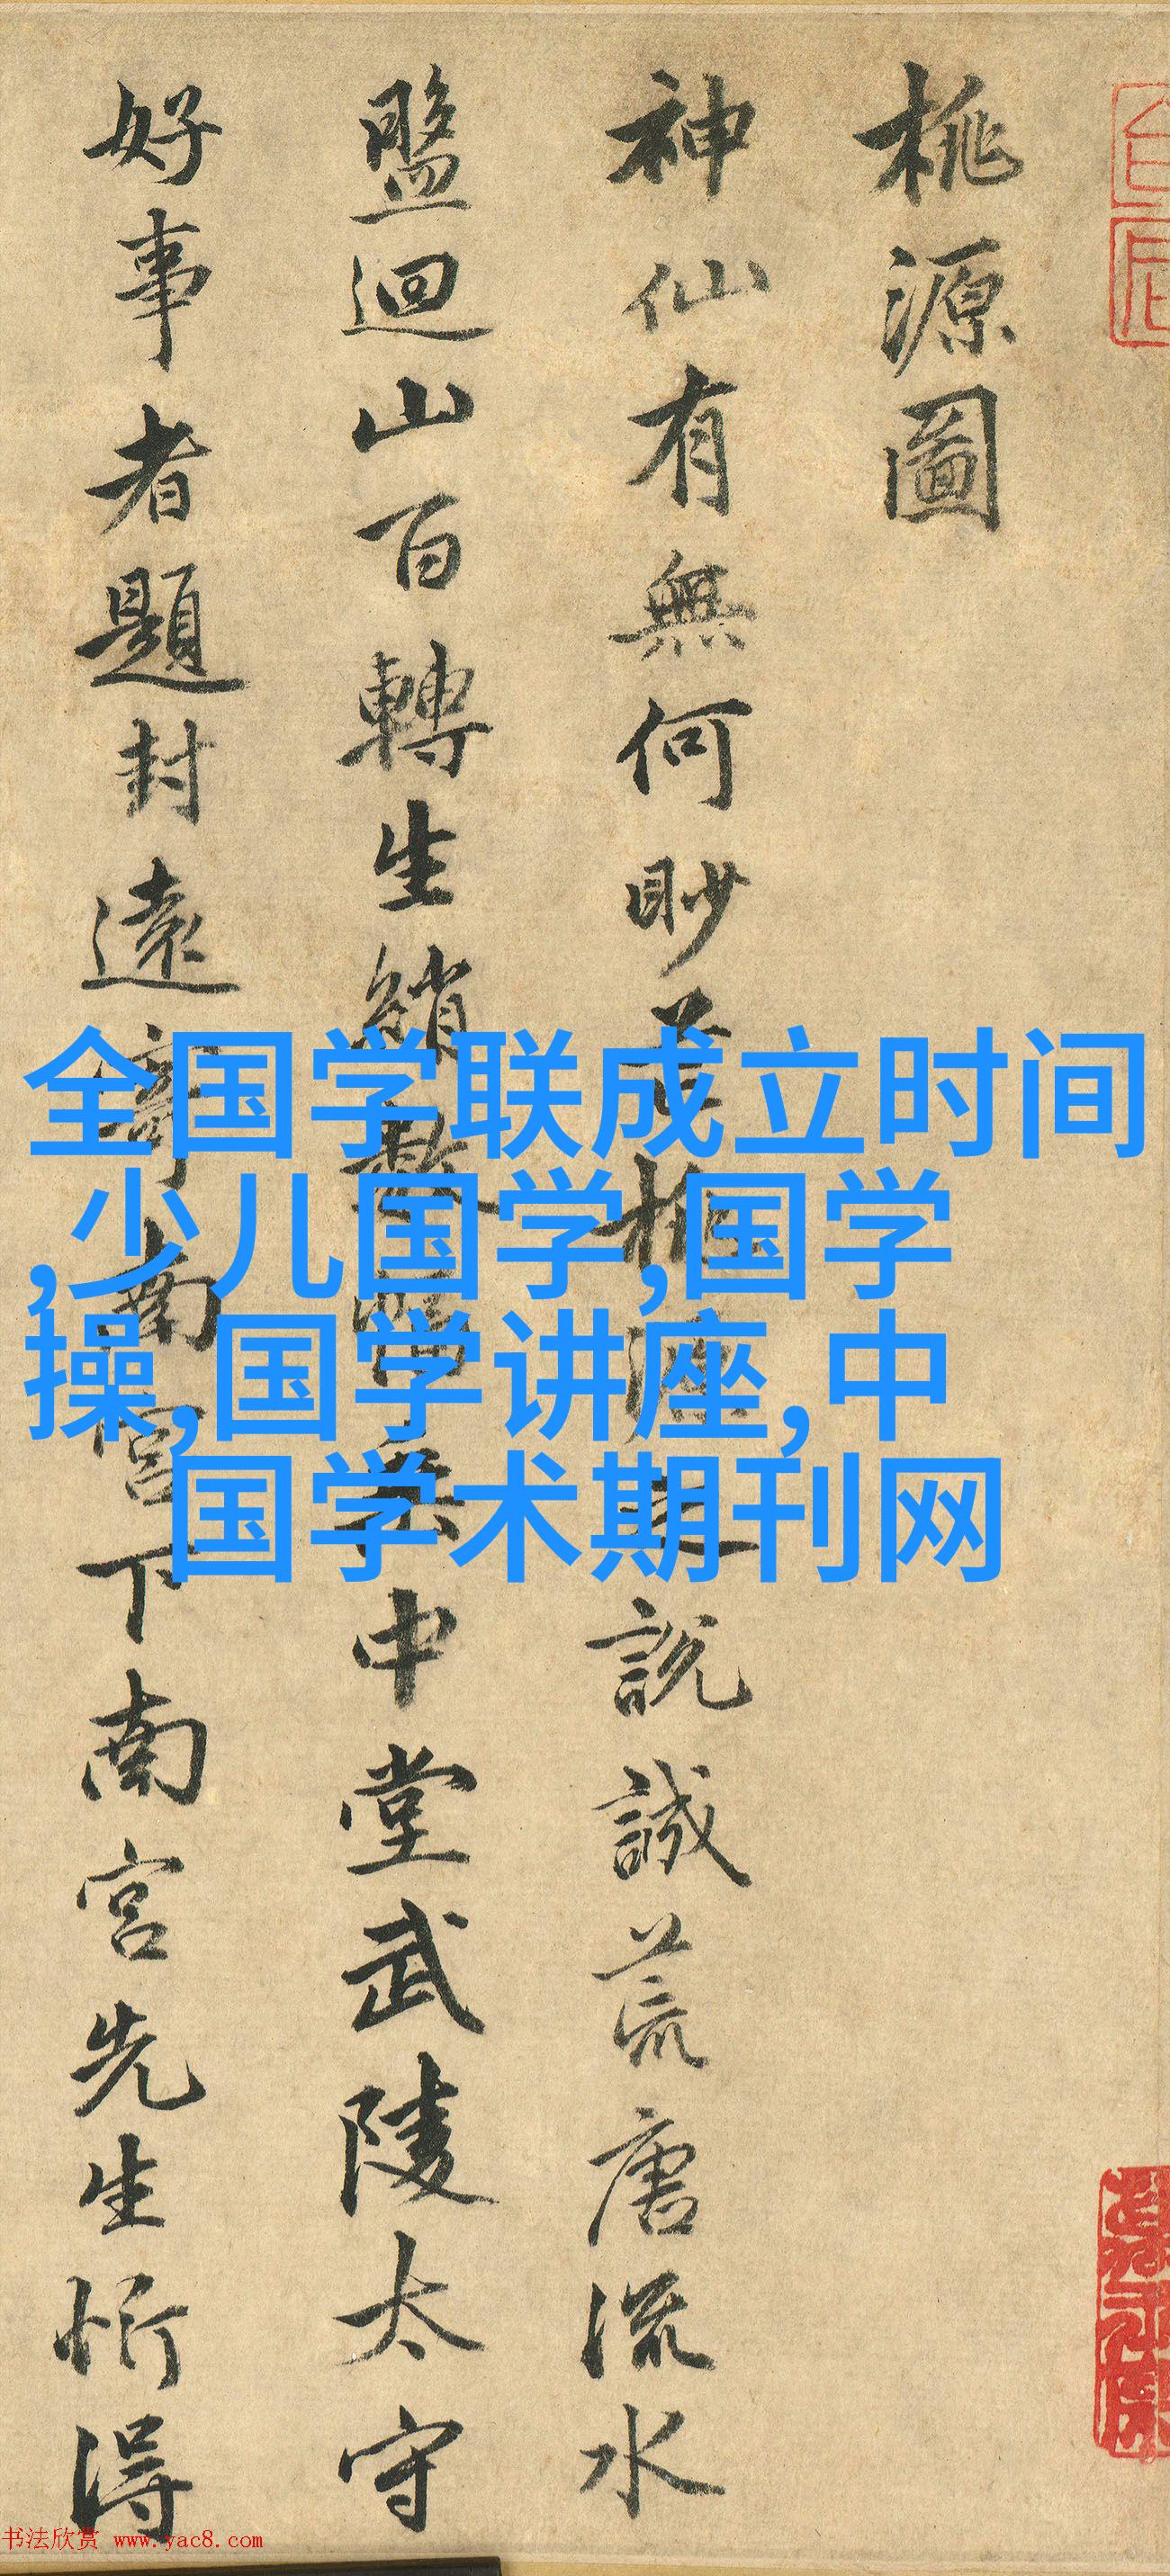 桃源圖
神仙有無何眇芒桃源之說誠荒唐流水
盤迴山百轉生綃數幅垂中堂武陵太守
好事者題封遠寄南宮下南宮先生忻得
全国学联成立时间
,少儿国学,国学
操,国学讲座,中
国学术期刊网
书法欣赏 www.yac8.com